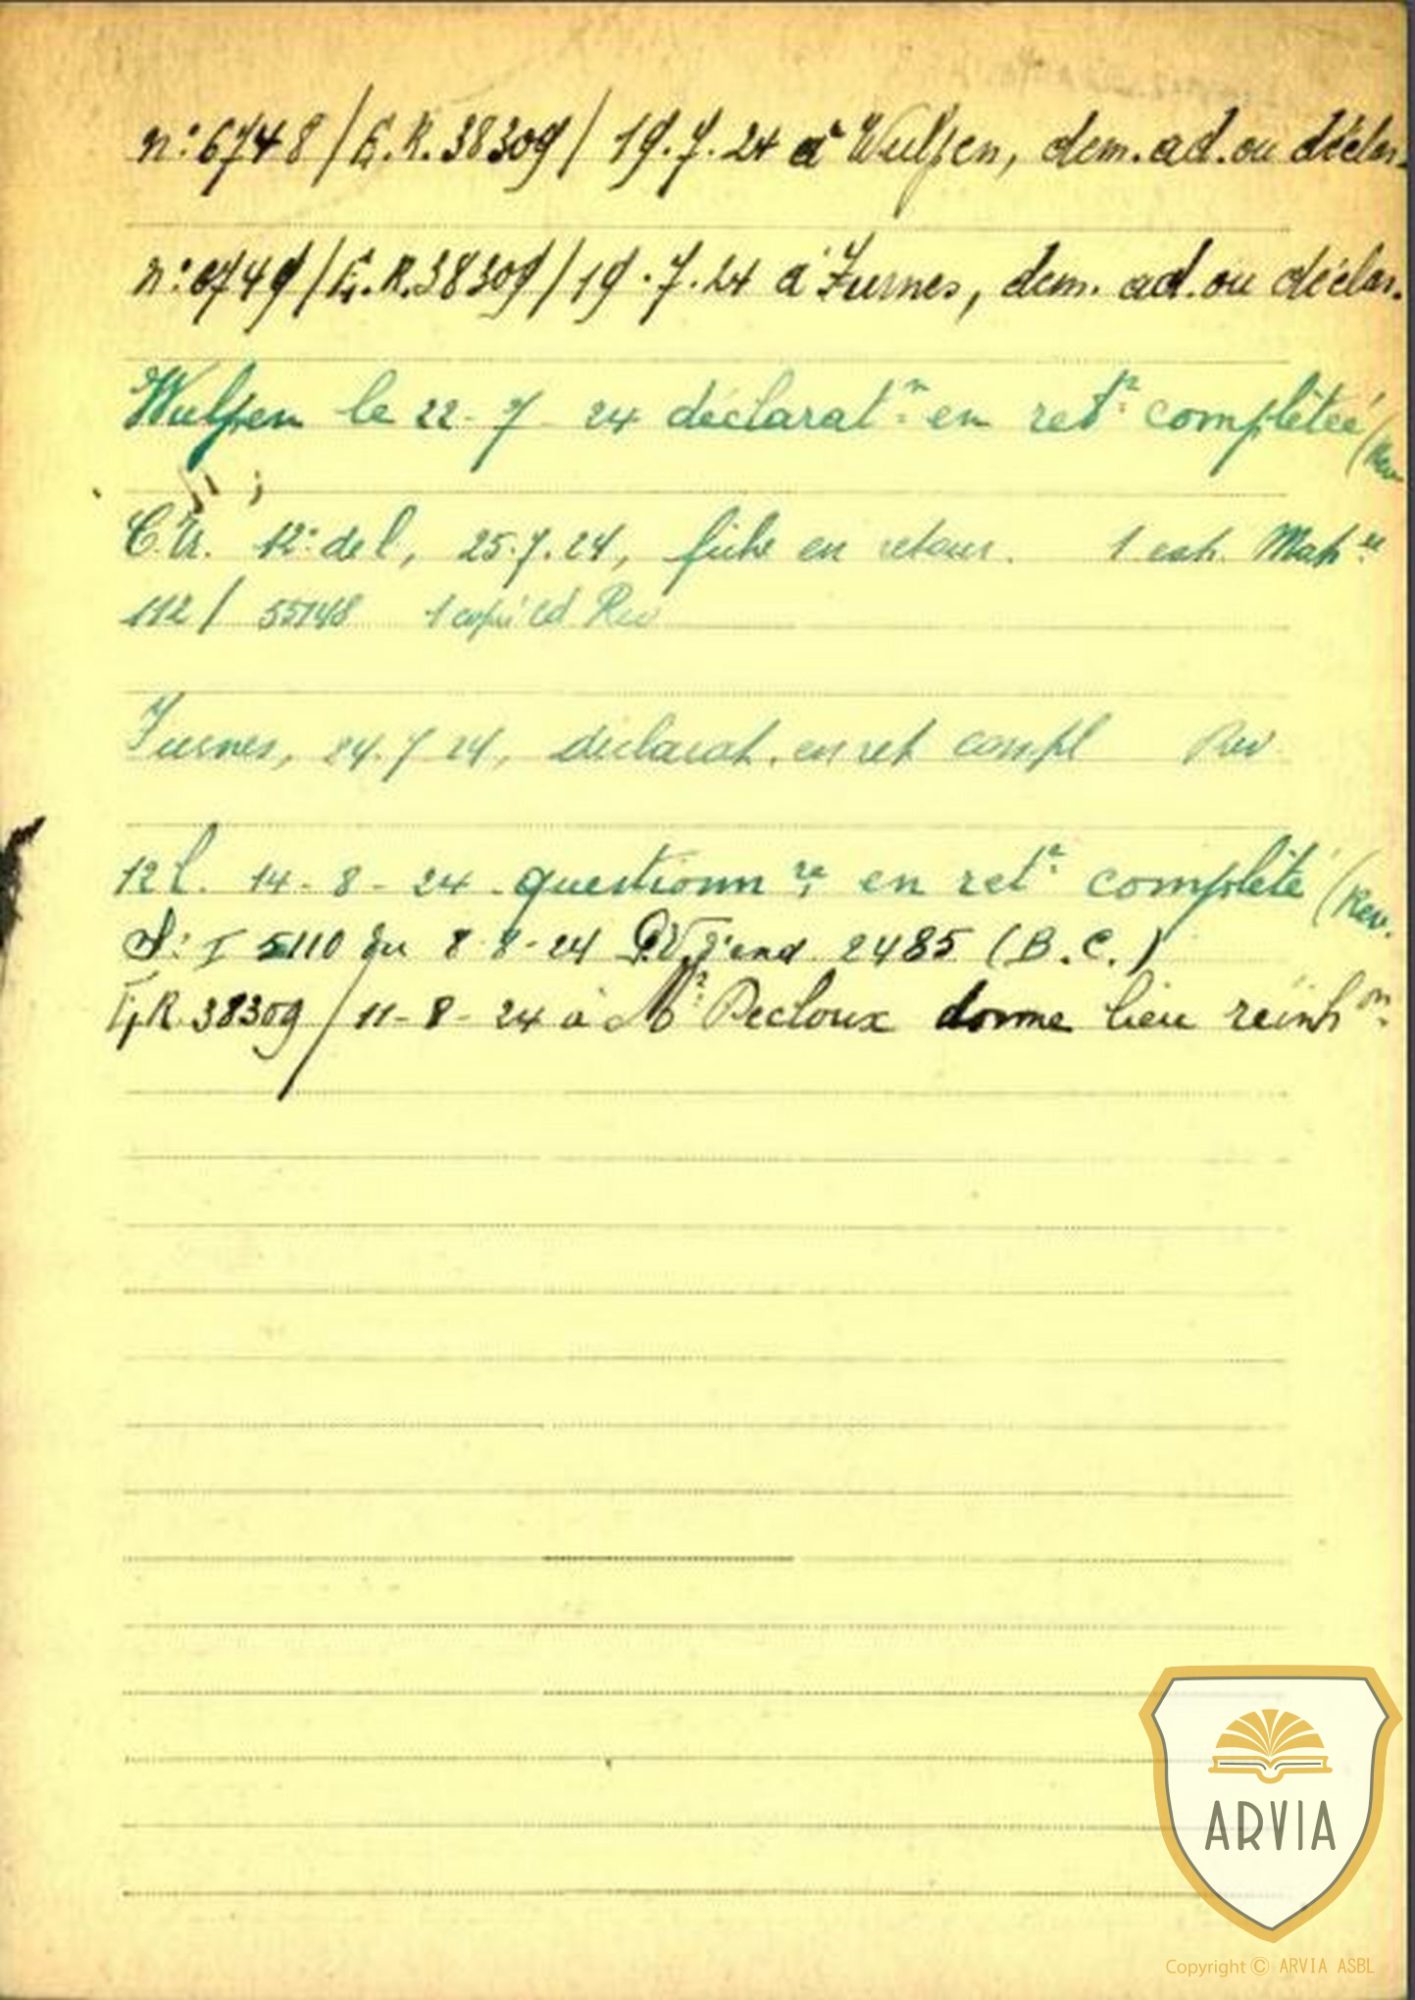 n° 6748 / E.R. 38309 / 19.7.24 à Wulpen, dem. ad. ou déclar.
n° 6749 / E.R. 38309 / 19.7.24 à Furnes, dem. ad. ou déclar.
Wulpen le 22-7-24 déclarat.n en ret.r complétée (Rev.
C.Tr. 12° de l, 25.7.24, fiche en retour. 1 ext. Mat.le
112 / 55148 1 copie Rev
Furnes, 24.7.24, déclarat. en ret compl Rev
12 l. 14-8-24 questionn.re en ret.r complété (Rev.
I 5110 du 8-8-24 P.V. gend 2485 (B.C.)
E.R. 38309 / 11-8-24 à Mr Decloux donne lieu réinh.on
ARVIA
Copyright © ARVIA ASBL